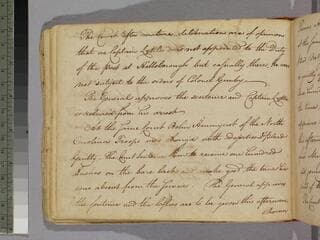 The Court after mature deliberation are of opinion
that as Captain was not appointed to the Duty
of the post at Hillsborough but casually there, he was
not subject to the orders of Colonel Gunby
The General approves the sentence and Captain
is released from his arrest
At the same Court John Hunnycut of the North
Carolina Troops was with Desertion found
Guilty, the Court him to receive one hundred
lashes on the bare back and make good the time he
was absent from the Service The General approves
the sentence and the lashes are to be given this afternoon